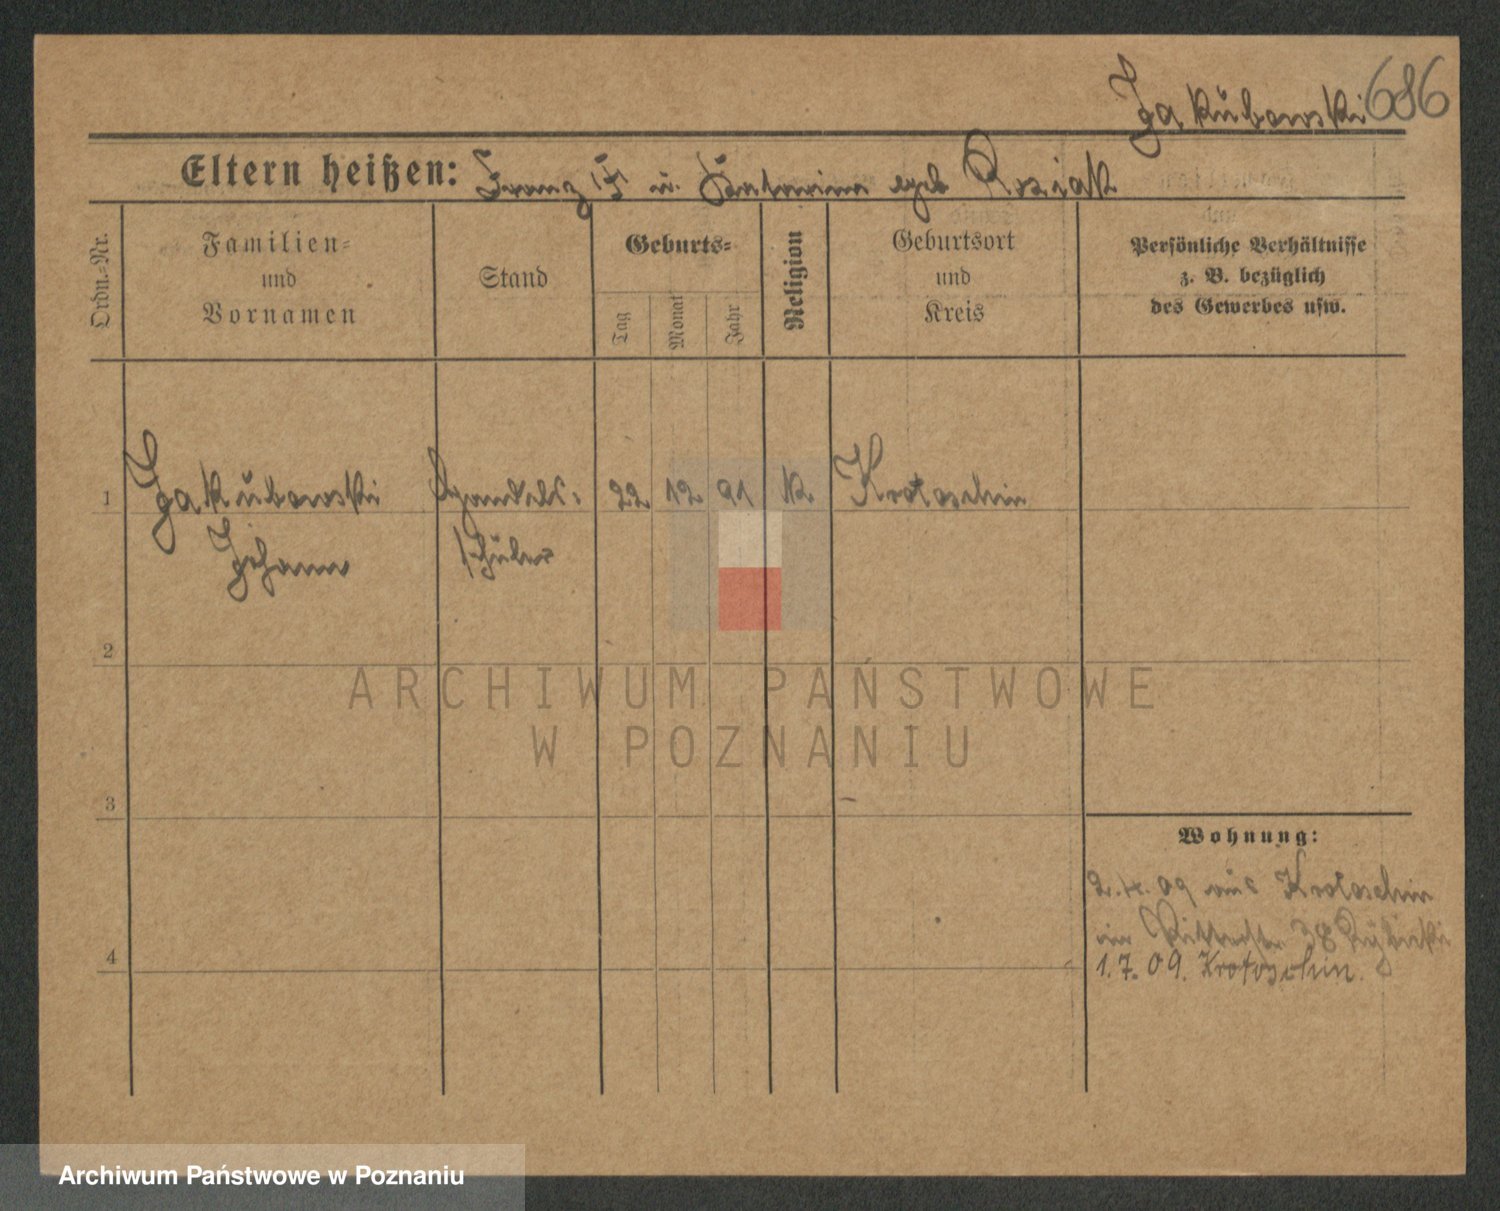 Jakubowski 686
Eltern heißen: Franz J. u. Katarina geb. Roziak
Ordn.-Nr.
Familien-
und
Vornamen
Stand
Geburts-
Tag
Monat
Jahr
Religion
Geburtsort
und
Kreis
Persönliche Verhältnisse
z. B. bezüglich
des Gewerbes usw.
1 Jakubowski Handels- 22 12 91 k. Krotoschin
Johann schüler
2
3
4
Wohnung:
2.4.09 aus Krotoschin
in Ritterstr 38
1.7.09. Krotoschin.
ARCHIWUM PAŃSTWOWE
W POZNANIU
Archiwum Państwowe w Poznaniu